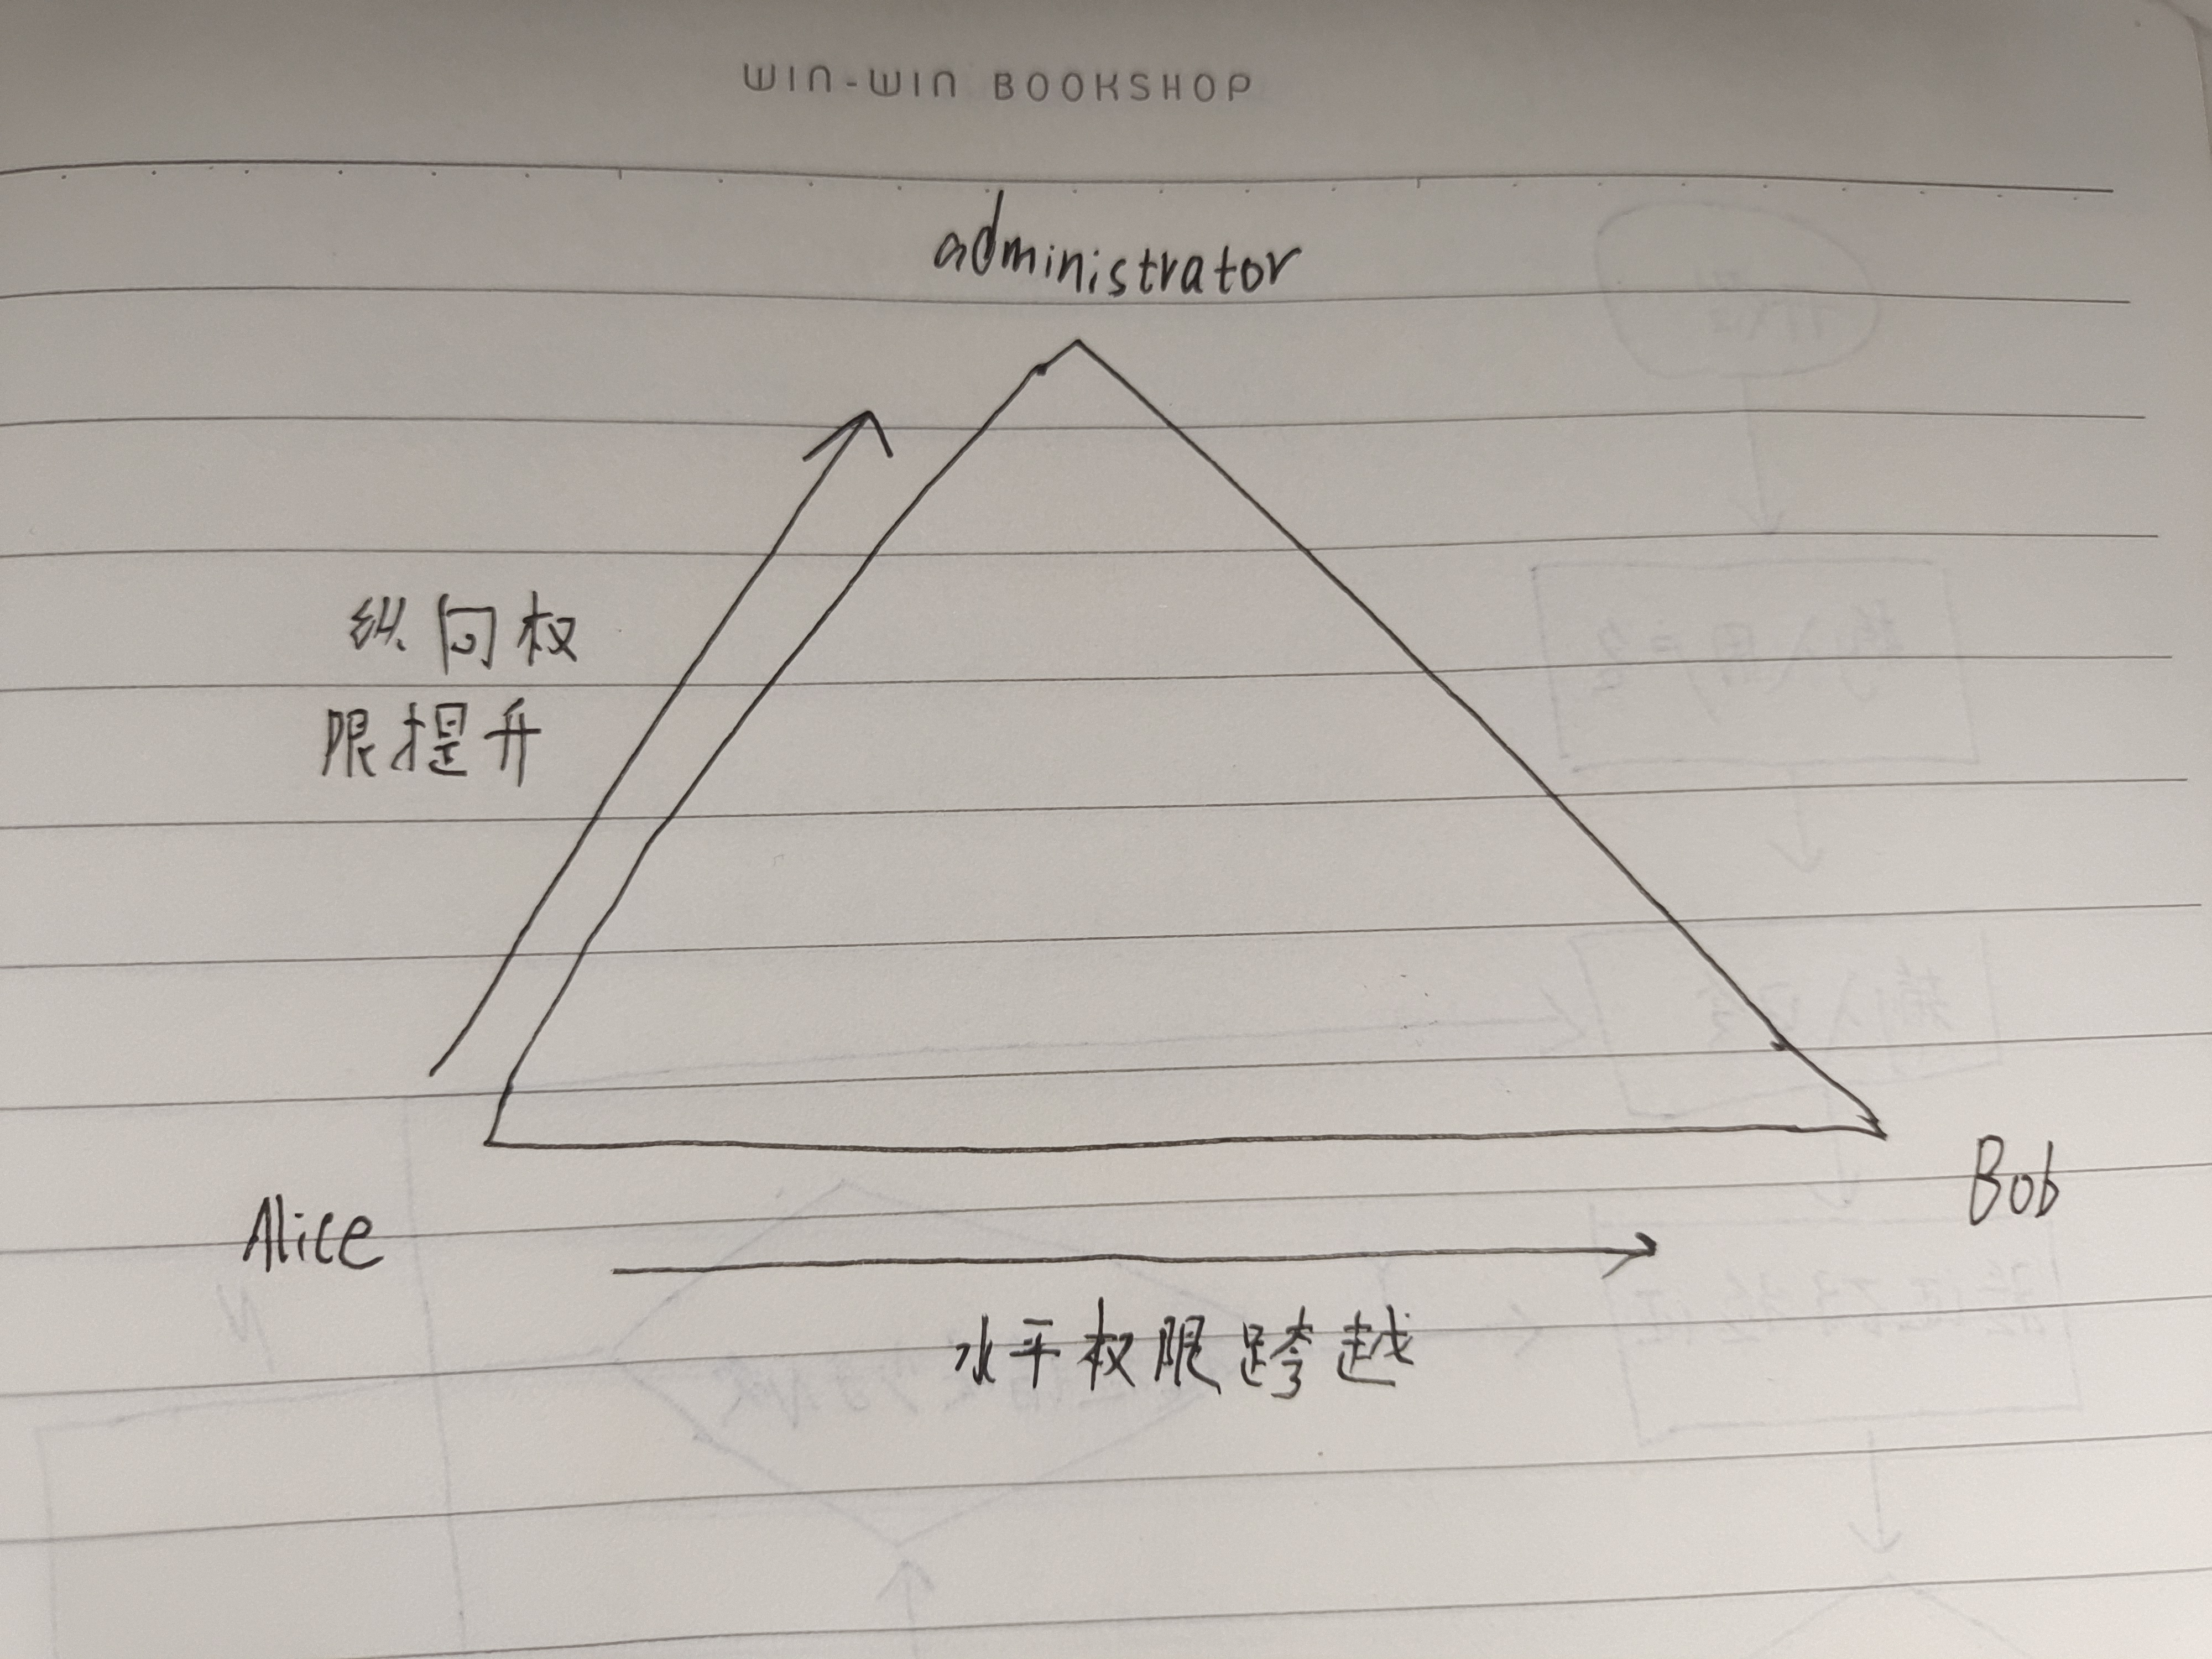 WIN-WIN BOOKSHOP
administrator
纵向权
限提升
Alice
Bob
水平权限跨越